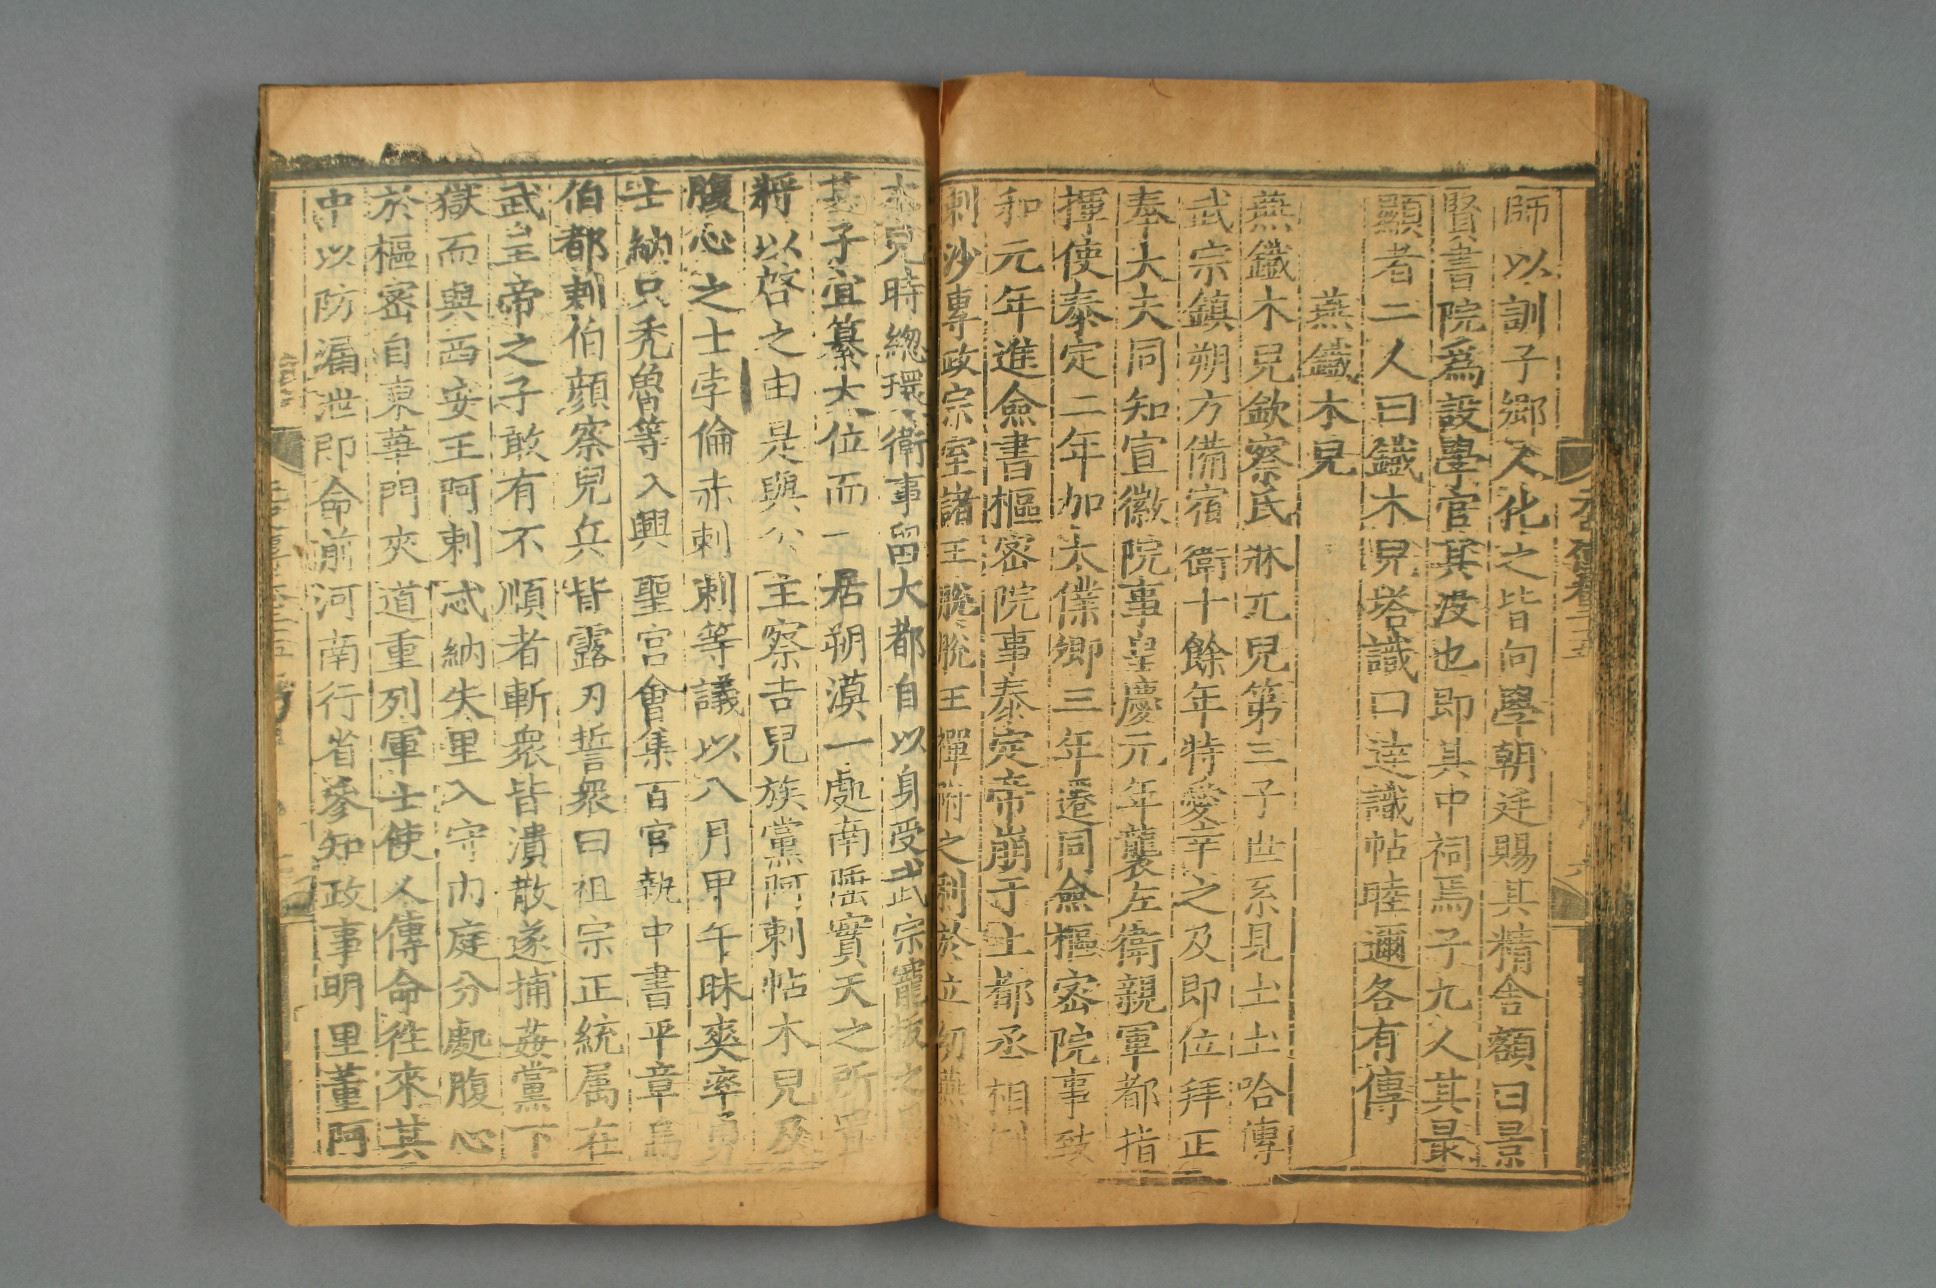 師以訓子鄉人化之皆向學朝廷賜其精舍額曰景
賢書院爲設學官其没也即其中祠焉子九人其最
顯者二人曰鐵木兒塔識曰達識帖睦邇各有傳
燕鐵木兒
燕鐵木兒欽察氏牀兀兒第三子世系見土土哈傳
武宗鎮朔方備宿衛十餘年特愛幸之及即位拜正
奉大夫同知宣徽院事皇慶元年襲左衛親軍都指
揮使泰定二年加太僕卿三年遷同僉樞密院事致
和元年進僉書樞密院事泰定帝崩于上都丞相倒
剌沙專政宗室諸王脫脫王禪附之利於立幼燕
木兒時總環衛事留大都自以身受武宗寵拔之
其子宜纂大位而一居朔漠一處南陲實天之所置
將以啓之由是與公主察吉兒族黨阿剌帖木兒及
腹心之士孛倫赤剌剌等議以八月甲午昧爽率勇
士納只禿魯等入興聖宮會集百官執中書平章烏
伯都剌伯顔察兒兵皆露刃誓眾曰祖宗正統属在
武皇帝之子敢有不順者斬衆皆潰散遂捕姦黨下
獄而與西安王阿剌忒納失里入守内庭分處腹心
於樞密自東華門夾道重列軍士使人傳命徃來其
中以防漏泄即命前河南行省參知政事明里董阿